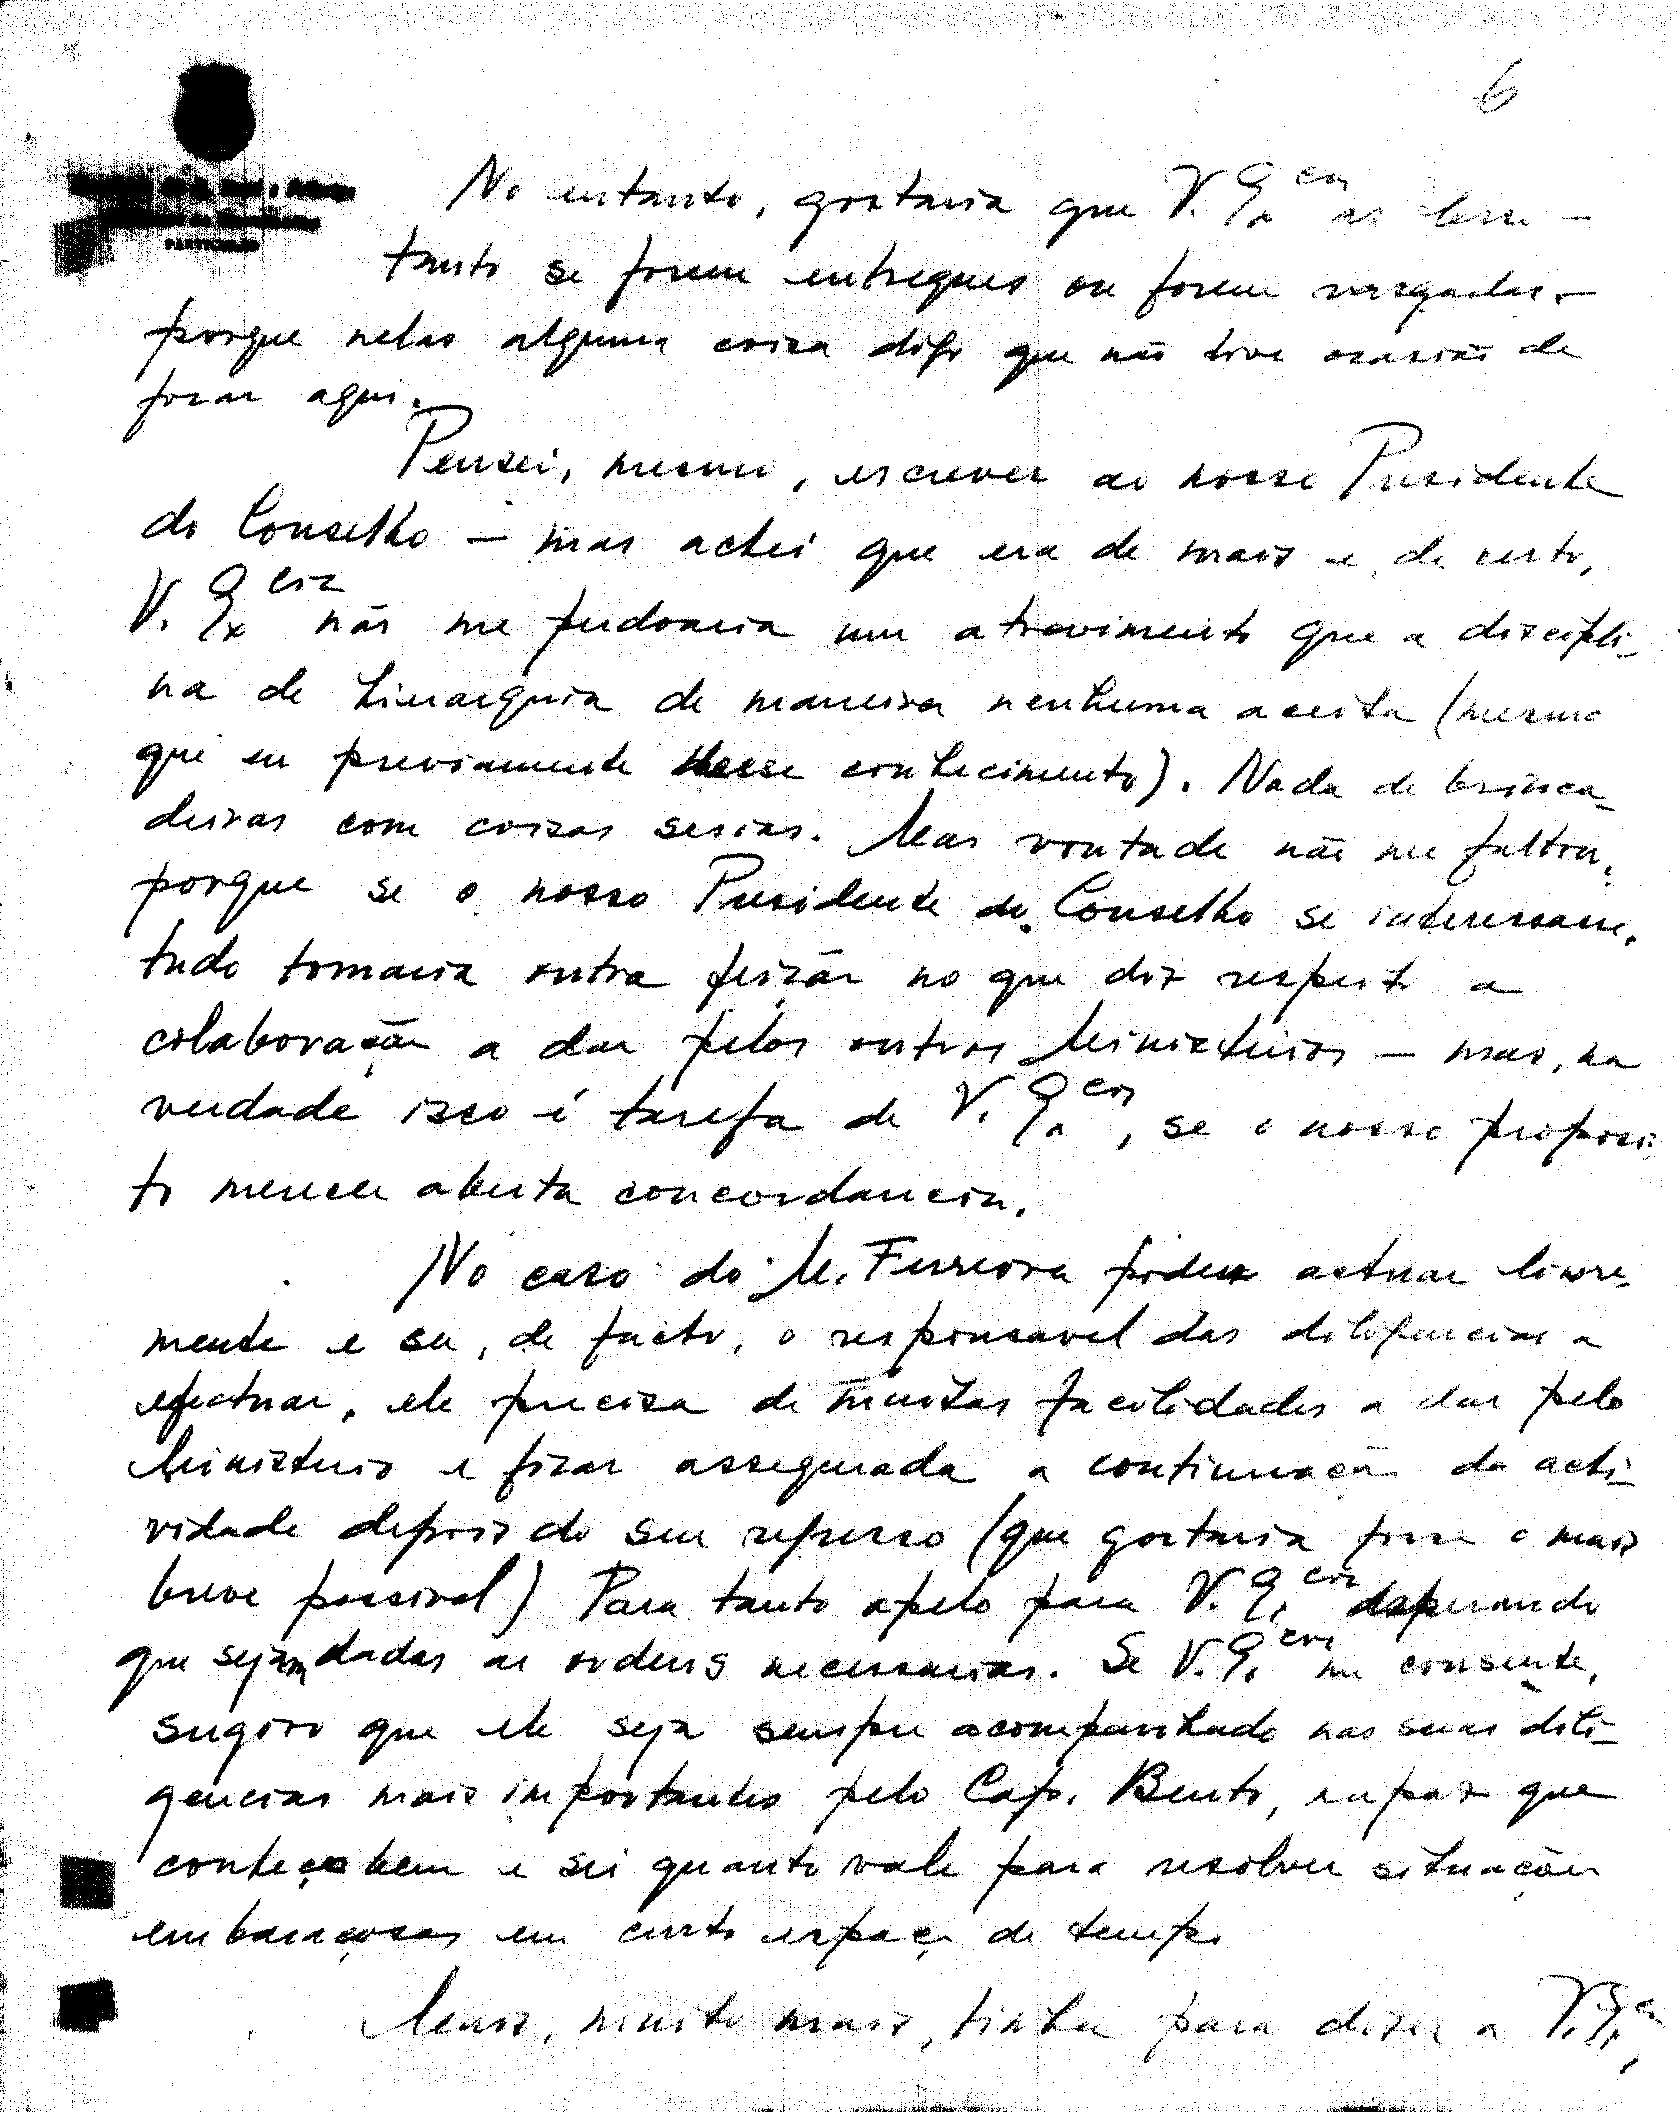 6
No entanto, gostaria que V. Ex.cia as lesse –
tanto se forem entregues ou forem rasgadas –
porque nelas alguma coisa digo que não tive ocasião de
focar aqui.
Pensei, mesmo, escrever ao nosso Presidente
do Conselho – mas achei que era de mais e, de certo,
V. Ex.cia não me perdoaria um atrevimento que a discipli-
na de hierarquia de maneira nenhuma aceita (mesmo
que eu previamente desse conhecimento). Nada de brinca-
deiras com coisas serias. Mas vontade não me faltou,
porque se o nosso Presidente do Conselho se interessasse,
tudo tomaria outra feição no que diz respeito a
colaboração a dar pelos outros Ministerios – mas, na
verdade isso é tarefa de V. Ex.cia, se o nosso proposi-
to merecer aberta concordancia.
No caso do M. Ferreira poder actuar livre-
mente e ser, de facto, o responsavel das diligencias a
efectuar, ele precisa de muitas facilidades a dar pelo
Ministerio e ficar assegurada a continuação da acti-
vidade depois do seu regresso (que gostaria fosse o mais
breve possivel) Para tanto apelo para V. Ex.cia esperando
que sejam dadas as ordens necessarias. Se V. Ex.cia me consente,
sugiro que ele seja sempre acompanhado nas suas dili-
gencias mais importantes pelo Cap. Bento, rapaz que
conheço bem e sei quanto vale para resolver situações
embaraçosas em curto espaço de tempo
Mais, muito mais, tinha para dizer a V. Ex.cia,